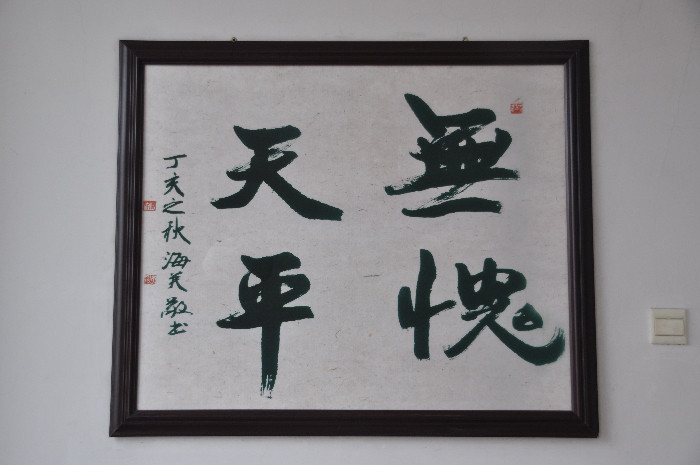 無愧
天平
丁亥之秋海天敬书